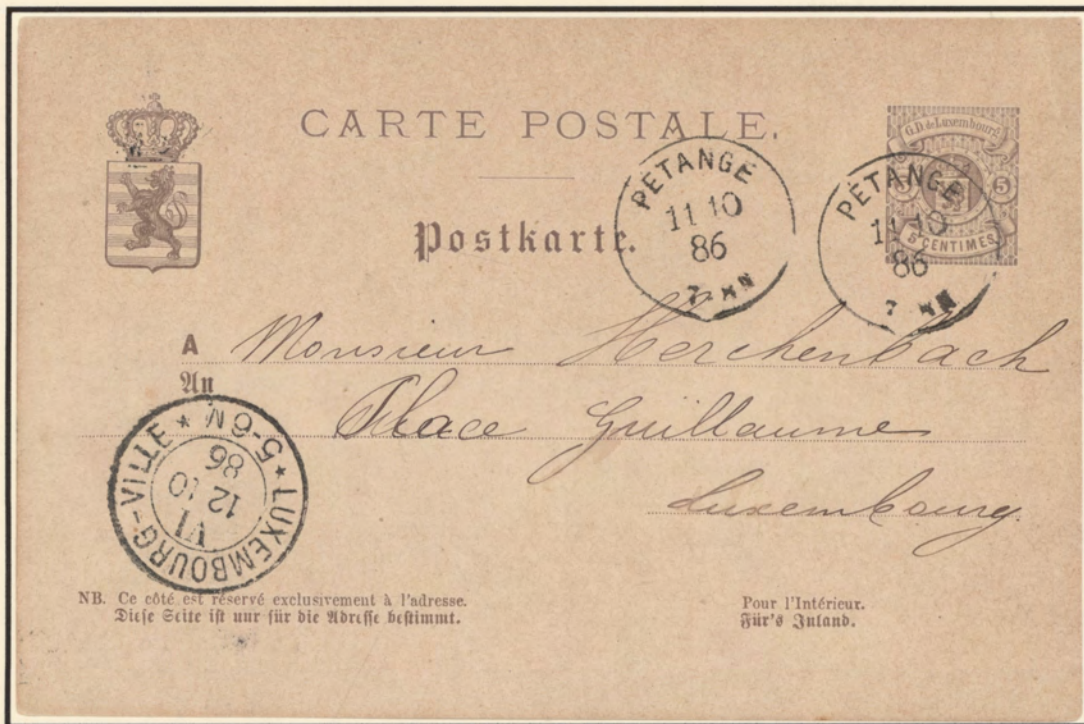 CARTE POSTALE.
Postkarte.
G.D. de Luxembourg
5 5
5 CENTIMES
PÉTANGE
11 10
86
7
PÉTANGE
11 10
86
7
A Monsieur Herchenbach
An
Place Guillaume
Luxembourg.
* LUXEMBOURG-VILLE * 5-6M
VI
12 10
86
NB. Ce côté est réservé exclusivement à l'adresse.
Diese Seite ist nur für die Adresse bestimmt.
Pour l'Intérieur.
Für's Inland.